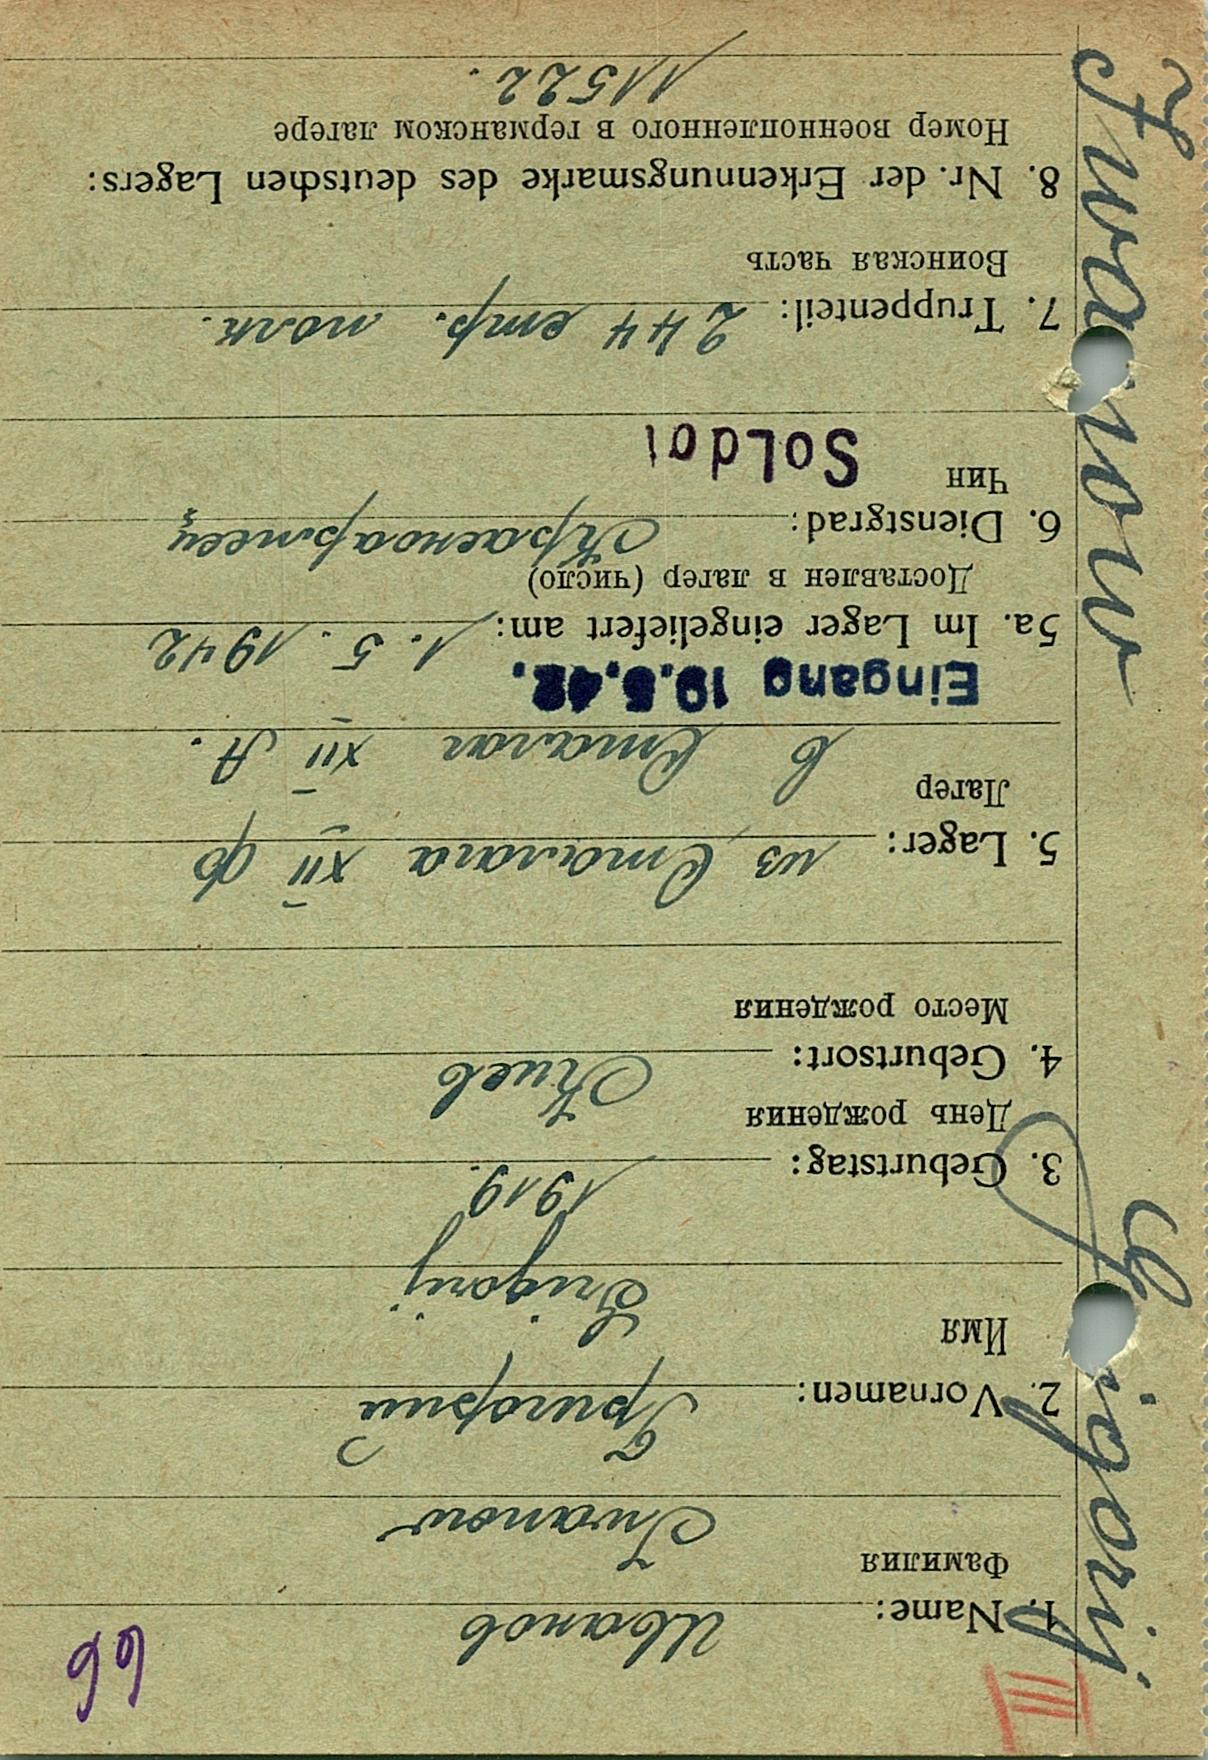 66
III
Iwanow Grigorij
1. Name: Иванов
Фамилия
Iwanow
2. Vornamen: Григорий
Имя
Grigorij
3. Geburtstag: 1919.
День рождения
4. Geburtsort: Киев
Место рождения
5. Lager: из Сталага XII ф
Лагер
в Сталаг XII А.
Eingang 19.5.42.
5a. Im Lager eingeliefert am: 1. 5. 1942
Доставлен в лагер (число)
6. Dienstgrad: Красноармеец
Чин
Soldat
7. Truppenteil: 244 стр. полк.
Воинская часть
8. Nr. der Erkennungsmarke des deutschen Lagers:
Номер военнопленного в германском лагере
11522.